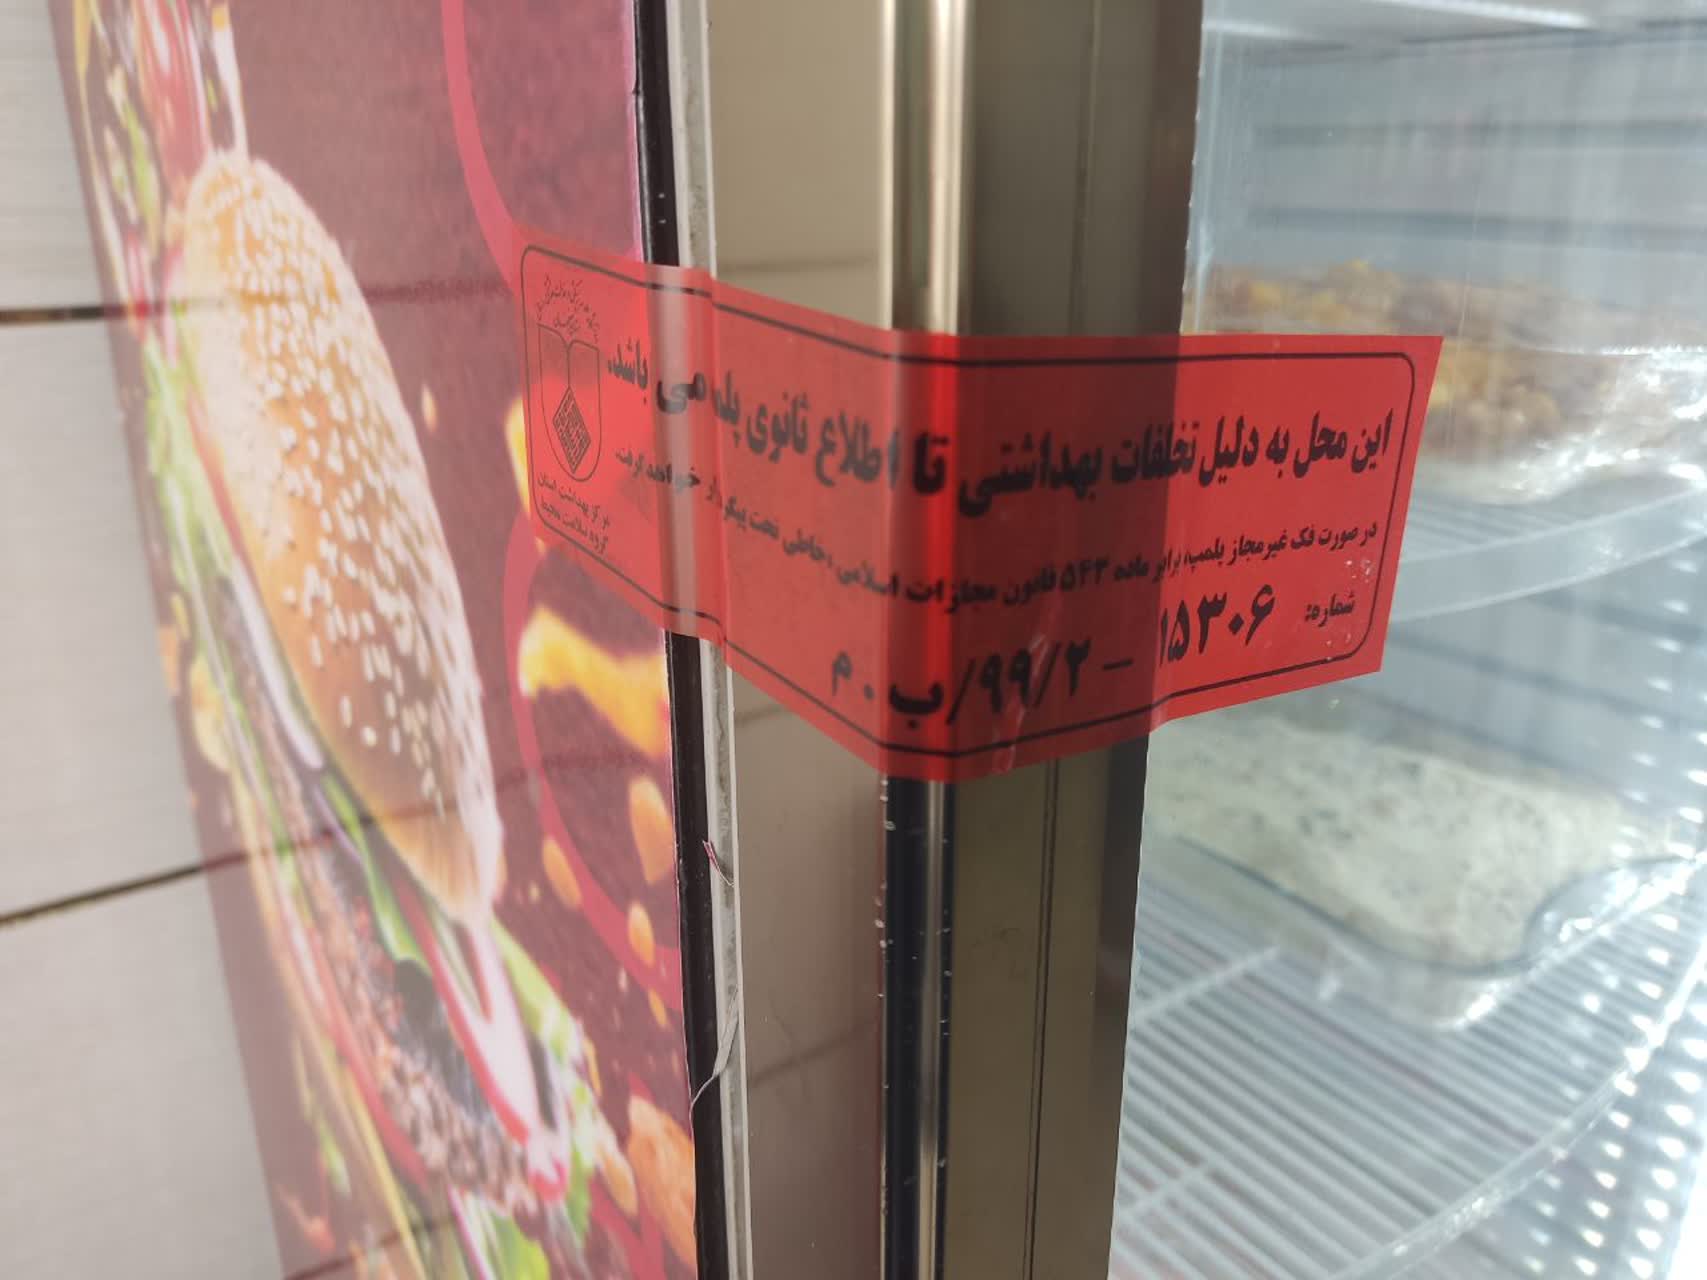 این محل به دلیل تخلفات بهداشتی تا اطلاع ثانوی پلمپ می باشد.
در صورت فک غیرمجاز پلمپ، برابر ماده ۵۴۳ قانون مجازات اسلامی، خاطی تحت پیگرد قرار خواهد گرفت.
شماره: ۱۵۳۰۶ - ۹۹/۲/ب ۰ م
مرکز بهداشت استان
گروه سلامت محیط